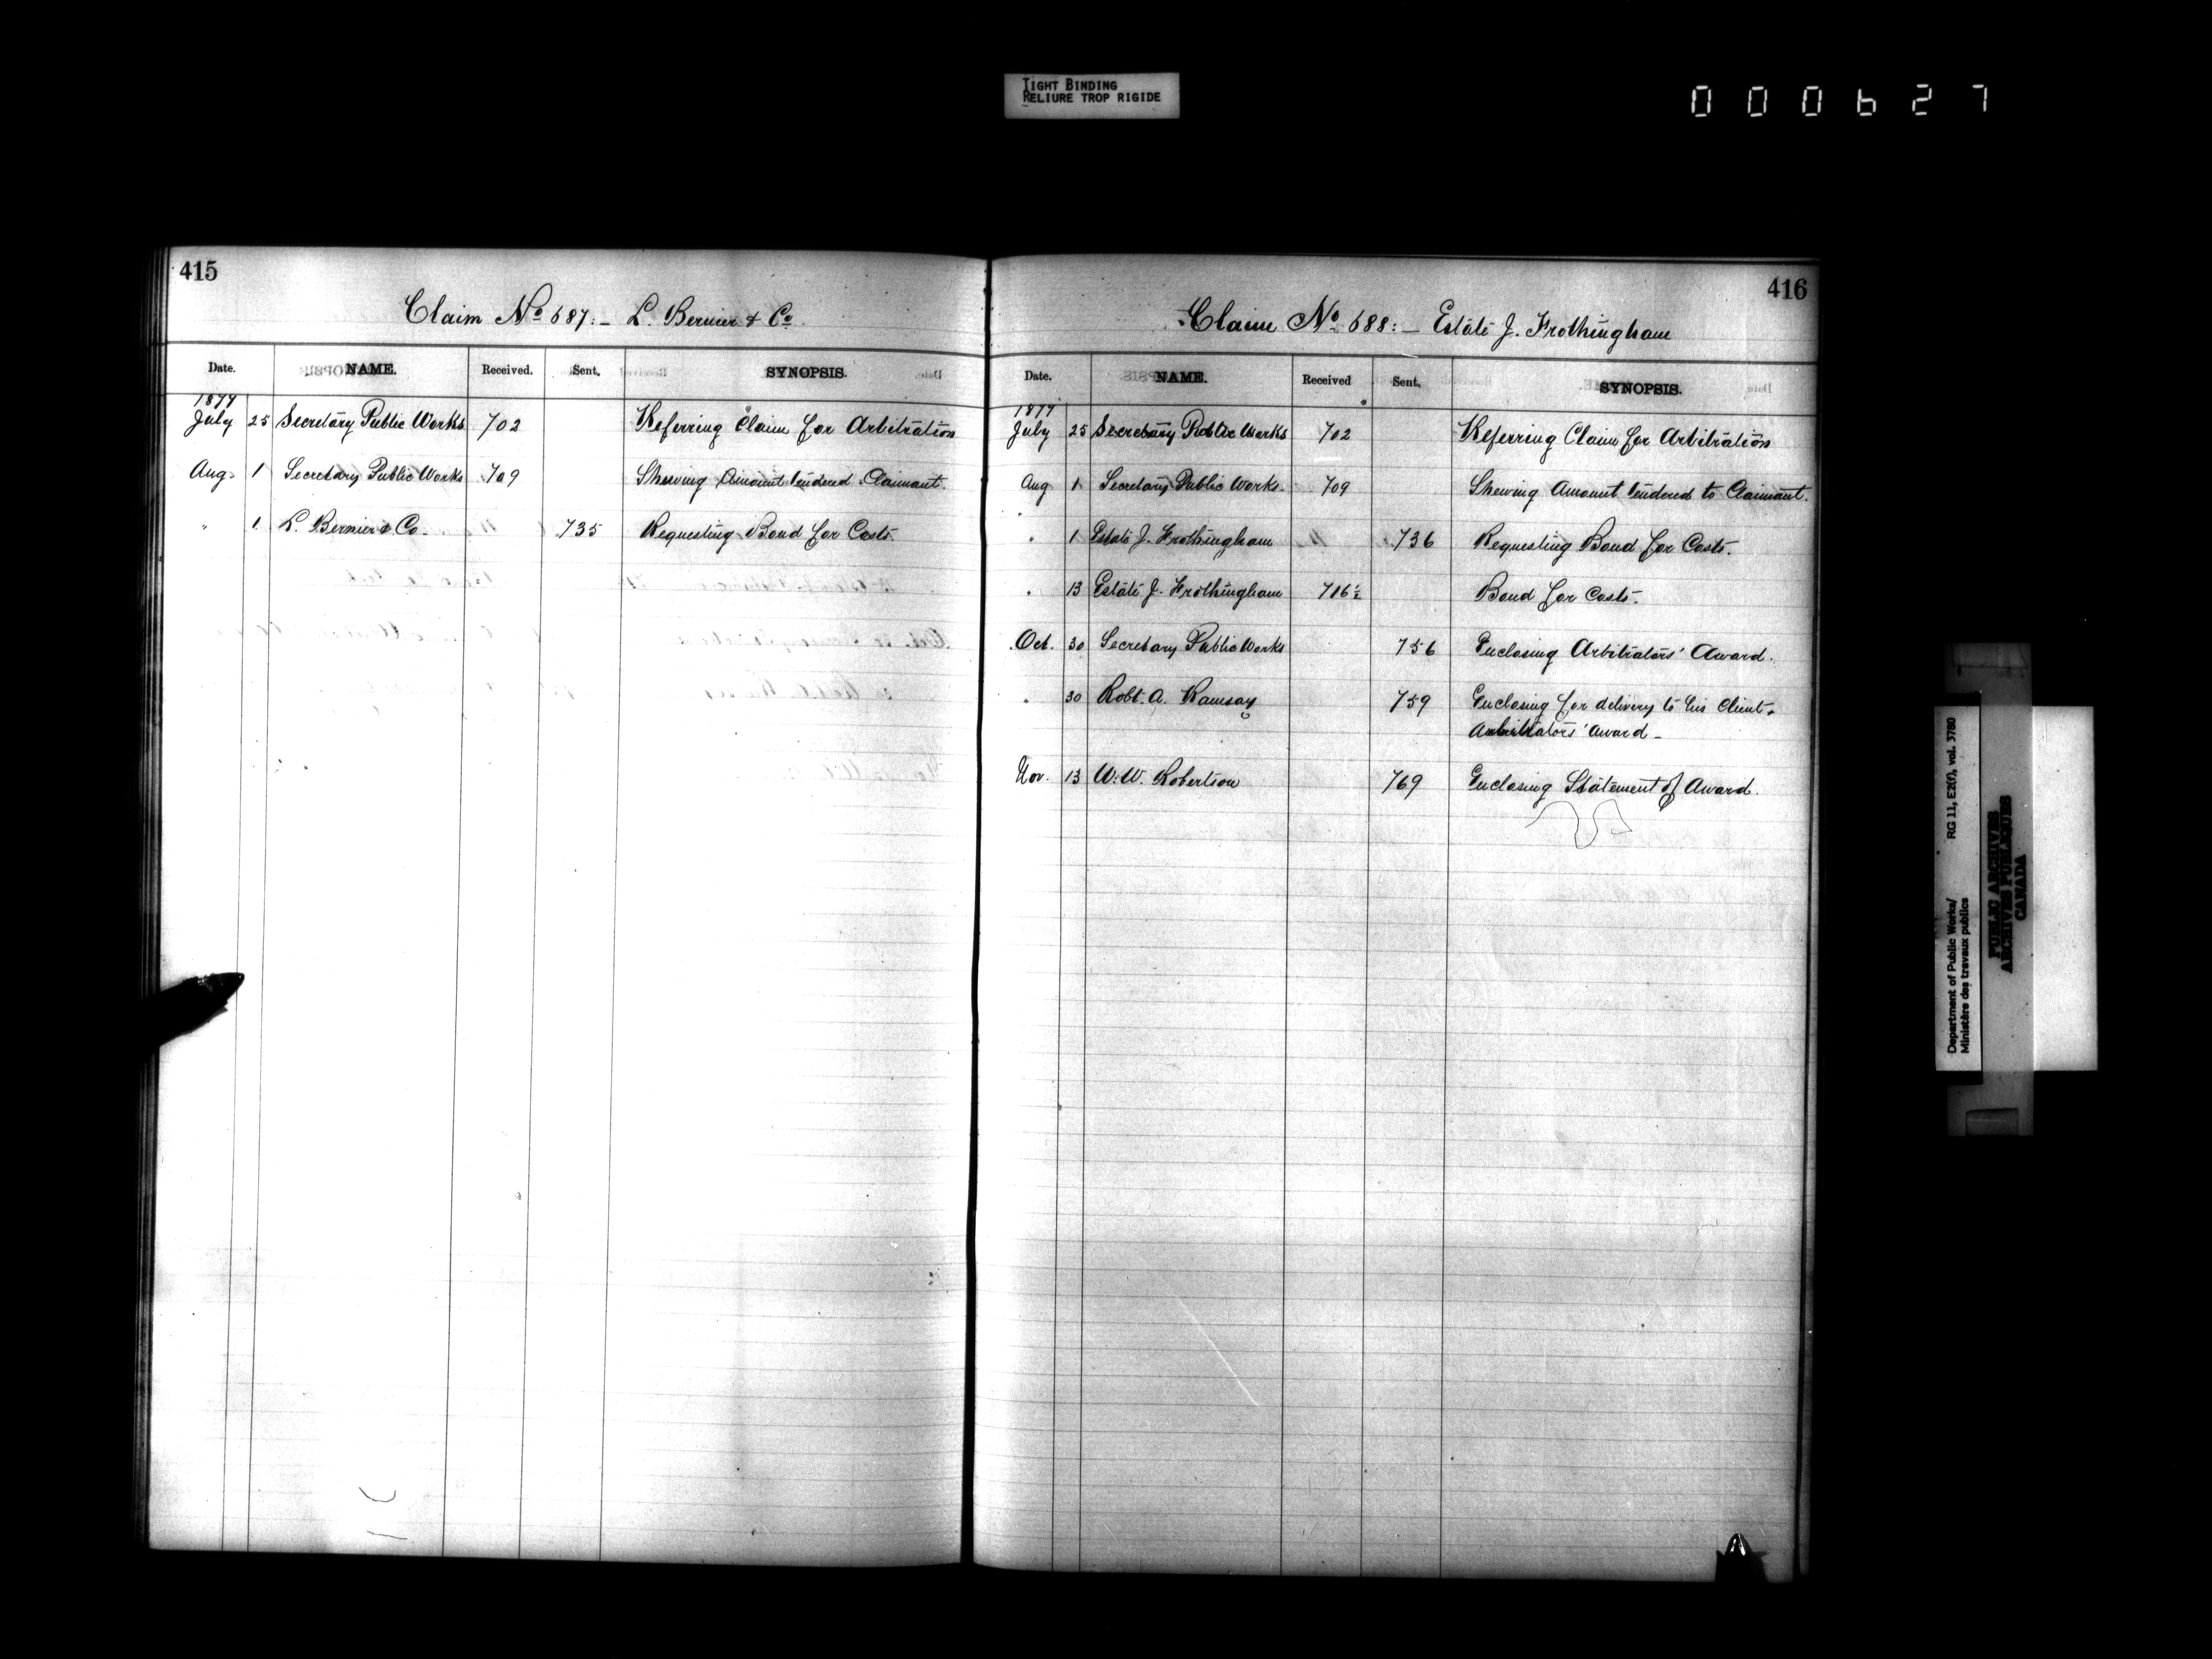 TIGHT BINDING
RELIURE TROP RIGIDE
000627
415
Claim No 687:- L. Bernier & Co.
Date. NAME. Received. Sent. SYNOPSIS.
1877
July 25 Secretary Public Works 702 Referring Claim for Arbitration
Aug. 1 Secretary Public Works 709 Shewing Amount tendered Claimant.
" 1 L. Bernier & Co. 735 Requesting Bond for Costs.
416
Claim No. 688:- Estate J. Frothingham
Date. NAME. Received Sent. SYNOPSIS.
1877
July 25 Secretary Public Works 702 Referring Claim for Arbitration
Aug 1 Secretary Public Works. 709 Shewing Amount tendered to Claimant.
" 1 Estate J. Frothingham 736 Requesting Bond for Costs.
" 13 Estate J. Frothingham 716½ Bond for Costs.
Oct. 30 Secretary Public Works 756 Enclosing Arbitrators' Award.
" 30 Robt. A. Ramsay 759 Enclosing for delivery to his Client,
Arbitrators' Award-
Nov. 13 W. W. Robertson 769 Enclosing Statement of Award.
Department of Public Works/ RG 11, E2(f), vol. 3780
Ministère des travaux publics
PUBLIC ARCHIVES
ARCHIVES PUBLIQUES
CANADA